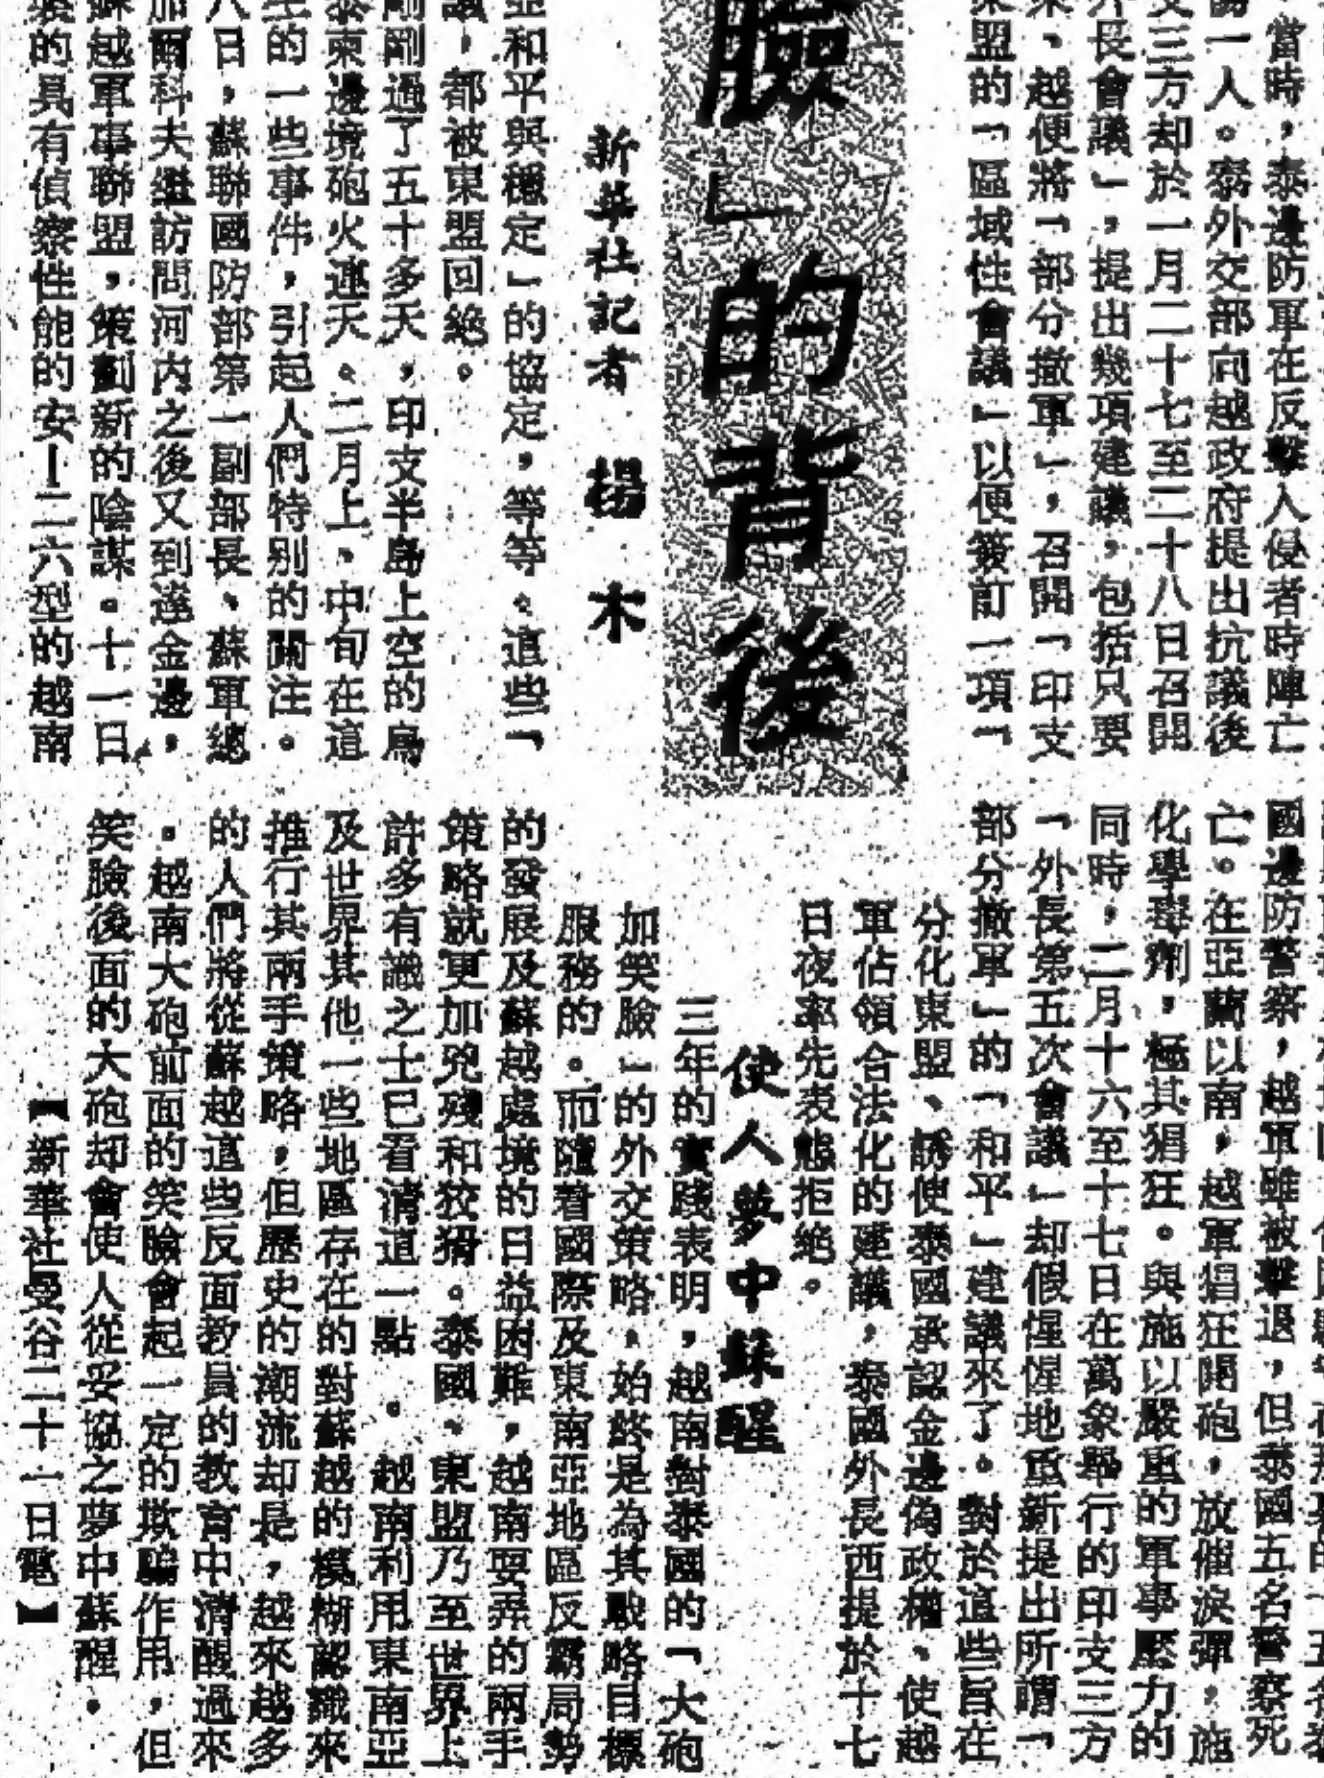 ，當時，泰邊防軍在反擊入侵者時陣亡
傷一人。泰外交部向越政府提出抗議後
支三方却於一月二十七至二十八日召開
外長會議」，提出幾項建議，包括只要
、越便將「部分撤軍」，召開「印支
東盟的「區域性會議」以便簽訂一項「
臉」的背後
新華社記者 楊 木
亞和平與穩定」的協定，等等。這些「
議，都被東盟回絶。
剛剛過了五十多天，印支半島上空的烏
泰柬邊境砲火連天。二月上、中旬在這
生的一些事件，引起人們特别的關注。
八日，蘇聯國防部第一副部長、蘇軍總
加爾科夫繼訪問河内之後又到達金邊，
蘇越軍事聯盟，策劃新的陰謀。十一日
的具有偵察性能的安－二六型的越南
國邊防警察，越軍雖被擊退，但泰國五名警察死
亡。在亞蘭以南，越軍猖狂開砲，放催淚彈，施
化學毒劑，極其猖狂。與施以嚴重的軍事壓力的
同時，二月十六至十七日在萬象舉行的印支三方
「外長第五次會議」却假惺惺地重新提出所謂「
部分撤軍」的「和平」建議來了。對於這些旨在
分化東盟、誘使泰國承認金邊偽政權、使越
軍佔領合法化的建議，泰國外長西提於十七
日夜率先表態拒絶。
使人夢中蘇醒
三年的實踐表明，越南對泰國的「大砲
加笑臉」的外交策略，始終是為其戰略目標
服務的。而隨着國際及東南亞地區反霸局勢
的發展及蘇越處境的日益困難，越南耍弄的兩手
策略就更加兇殘和狡猾。泰國、東盟乃至世界上
許多有識之士已看清這一點。越南利用東南亞
及世界其他一些地區存在的對蘇越的模糊認識來
推行其兩手策略，但歷史的潮流却是，越來越多
的人們將從蘇越這些反面教員的教育中清醒過來
。越南大砲前面的笑臉會起一定的欺騙作用，但
笑臉後面的大砲却會使人從妥協之夢中蘇醒。
【新華社曼谷二十一日電】